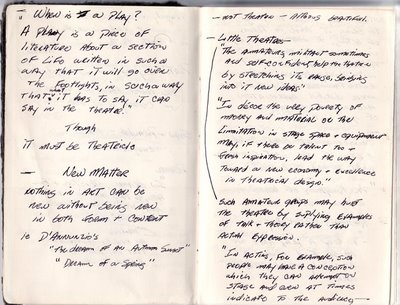 — "When is a Play?
A Play is a piece of
literature about a section
of life written in such a
way that it will go over
the footlights, in such a way
that what it has to say it can
say in the theatre."
Though
it must be theatrical
— New Matter
nothing in Art can be
new without being new
in both form & content
ie D'Annunzio's
"The dream of an Autumn Sunset"
"Dream of a Spring"
— not theatre — nothing beautiful.
— Little Theatres
"The amateurs, militant sometimes
and self-confident help the theatre
by stretching its range, bringing
into it new ideas"
"In decor the very poverty of
money and material or the
limitation in stage space & equipment
may, if there is talent to &
fresh inspiration, lead the way
toward a new economy & excellence
in theatrical design."
Such amateur groups may hurt
the theatre by supplying examples
of talk & theory rather than
actual expression.
"In acting, for example, such
people may have a conception
which they can attempt on
stage and even at times
indicate to the audience —